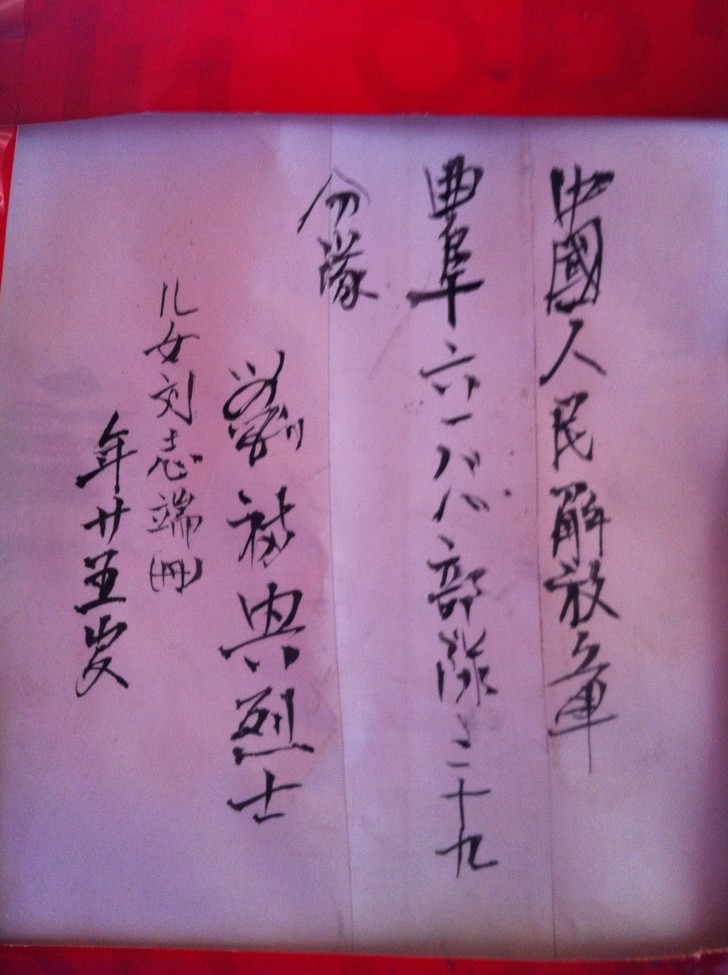 中國人民解放軍
曲阜六一八八部隊二十九
分隊
劉典烈士
儿女刘志端(冊)
年廿五岁